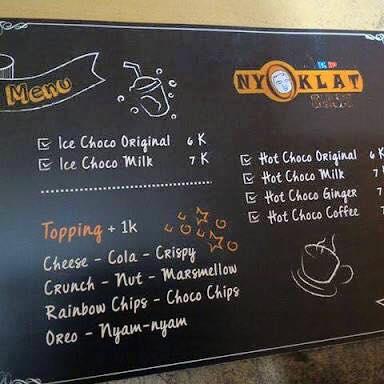 Menu
NYOKLAT
Ice Choco Original 6 K
Ice Choco Milk 7 K
Topping + 1k
Cheese - Cola - Crispy
Crunch - Nut - Marsmellow
Rainbow Chips - Choco Chips
Oreo - Nyam-nyam
Hot Choco Original 6 K
Hot Choco Milk 7
Hot Choco Ginger 7
Hot Choco Coffee 7